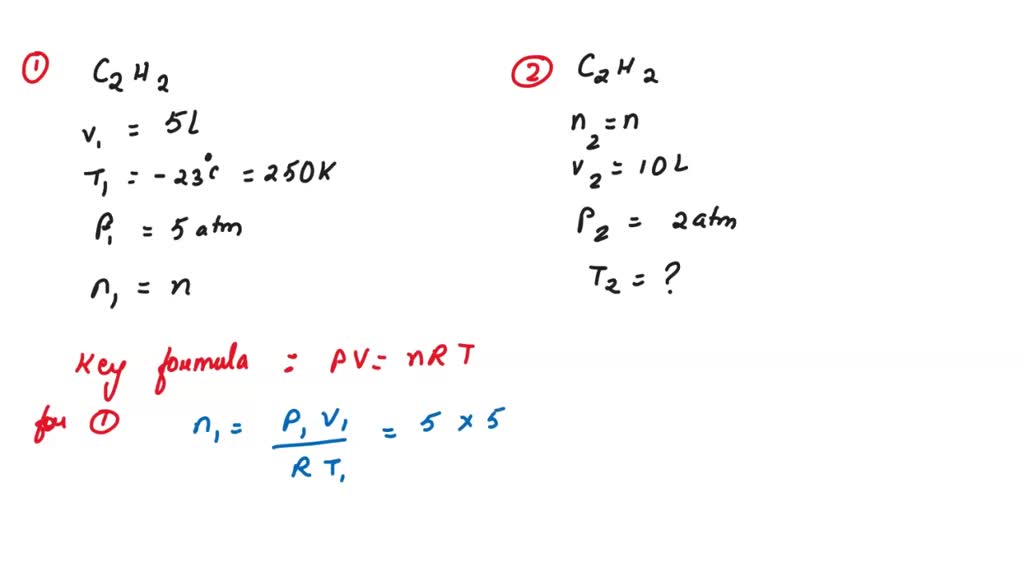 ① C₂H₂
V₁ = 5L
T₁ = -23°C = 250K
P₁ = 5 atm
n₁ = n
② C₂H₂
n₂ = n
V₂ = 10L
P₂ = 2atm
T₂ = ?
Key formula : PV = nRT
for ① n₁ = P₁ V₁ / R T₁ = 5 × 5